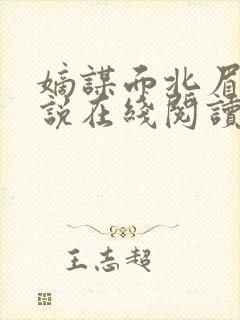 嫡謀而北眉
説在綫閱讀
王志超